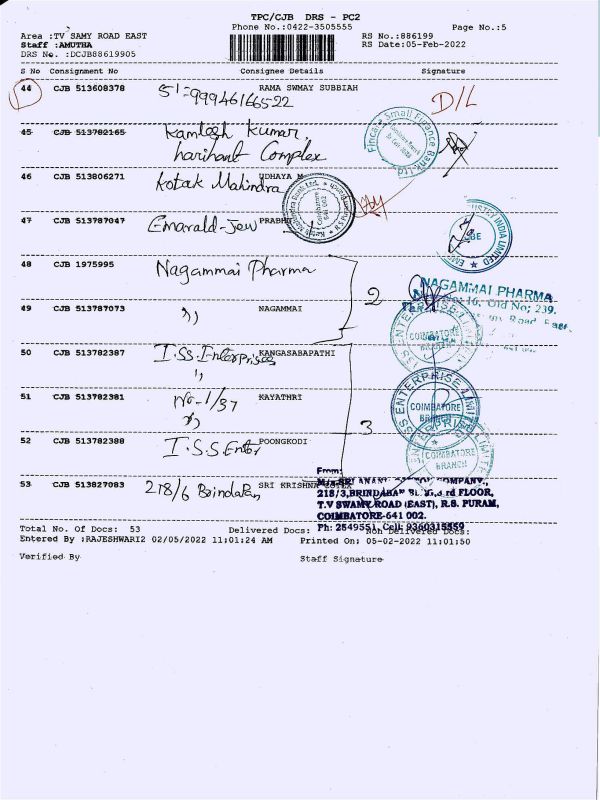 TPC/CJB DRS - PC2
Phone No.:0422-3505555
Page No.:5
Area :TV SAMY ROAD EAST
RS No.:886199
Staff :AMUTHA
RS Date:05-Feb-2022
DRS No. :DCJB88619905
S No Consignment No Consignee Details Signature
44 CJB 513608378 RAMA SWMAY SUBBIAH
D/L
45 CJB 513782165 Kamlesh Kumar,
harihant Complex
Fincare Small Finance Bank Ltd
46 CJB 513806271 UDHAYA M
Kotak Mahindra
Kotak Mahindra Bank Ltd.
Coimbatore
641 002
47 CJB 513787047 Emarald-Jew PRABHU
INDIA LIMITED
48 CJB 1975995 Nagammai Pharma
2
NAGAMMAI PHARMA
16, Old No; 239.
49 CJB 513787073 ,, NAGAMMAI
50 CJB 513782387 I.S.S.Enterprises KANGASABAPATHI
,,
ISS ENTERPRISE LIMITED
COIMBATORE
BRANCH
51 CJB 513782381 No-1/37 KAYATHRI
,,
3
ISS ENTERPRISE LIMITED
COIMBATORE
BRANCH
52 CJB 513782388 I.S.S Enter POONGKODI
COIMBATORE
BRANCH
53 CJB 513827083 218/6 Brindavan SRI KRISHNA
From:
M/s.SRI COMPANY.,
218/3,BRINDAVAN BLDG,3rd FLOOR,
T.V SWAMY ROAD (EAST), R.S. PURAM,
COIMBATORE-641 002.
Ph: 2549551, Cell: 9360315559
Total No. Of Docs: 53 Delivered Docs: Non Delivered Docs:
Entered By :RAJESHWARI2 02/05/2022 11:01:24 AM Printed On; 05-02-2022 11:01:50
Verified By Staff Signature